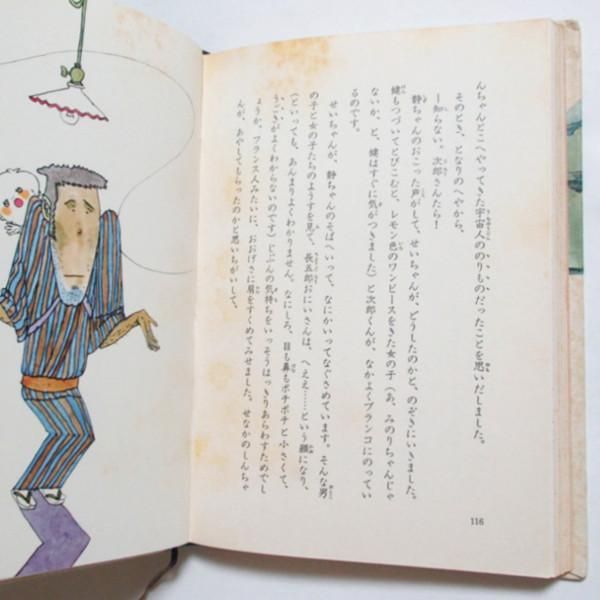 んちゃんどこへやってきた宇宙人ののりものだったことを思いだしました。
そのとき、となりのへやから、
―知らない、次郎さんたら！
静ちゃんのおこった声がして、せいちゃんが、どうしたのかと、のぞきにいきました。
健もつづいてとびこむと、レモン色のワンピースをきた女の子（あ、みのりちゃんじゃ
ないか、と、健はすぐに気がつきました）と次郎くんが、なかよくブランコにのってい
るのです。
せいちゃんが、静ちゃんのそばへいって、なにかいってなぐさめています。そんな男
の子と女の子たちのようすを見て、長五郎おにいさんは、へええ……という顔になり、
（といっても、あんまりよくわかりません。なにしろ、目も鼻もポチポチと小さくて、
うごきがよくわからないのです）じぶんの気持ちをいっそうはっきりあらわすためでし
ょうか、フランス人みたいに、おおげさに肩をすくめてみせました。せなかのしんちゃ
んが、あやしてもらったのかと思いちがいして、
116